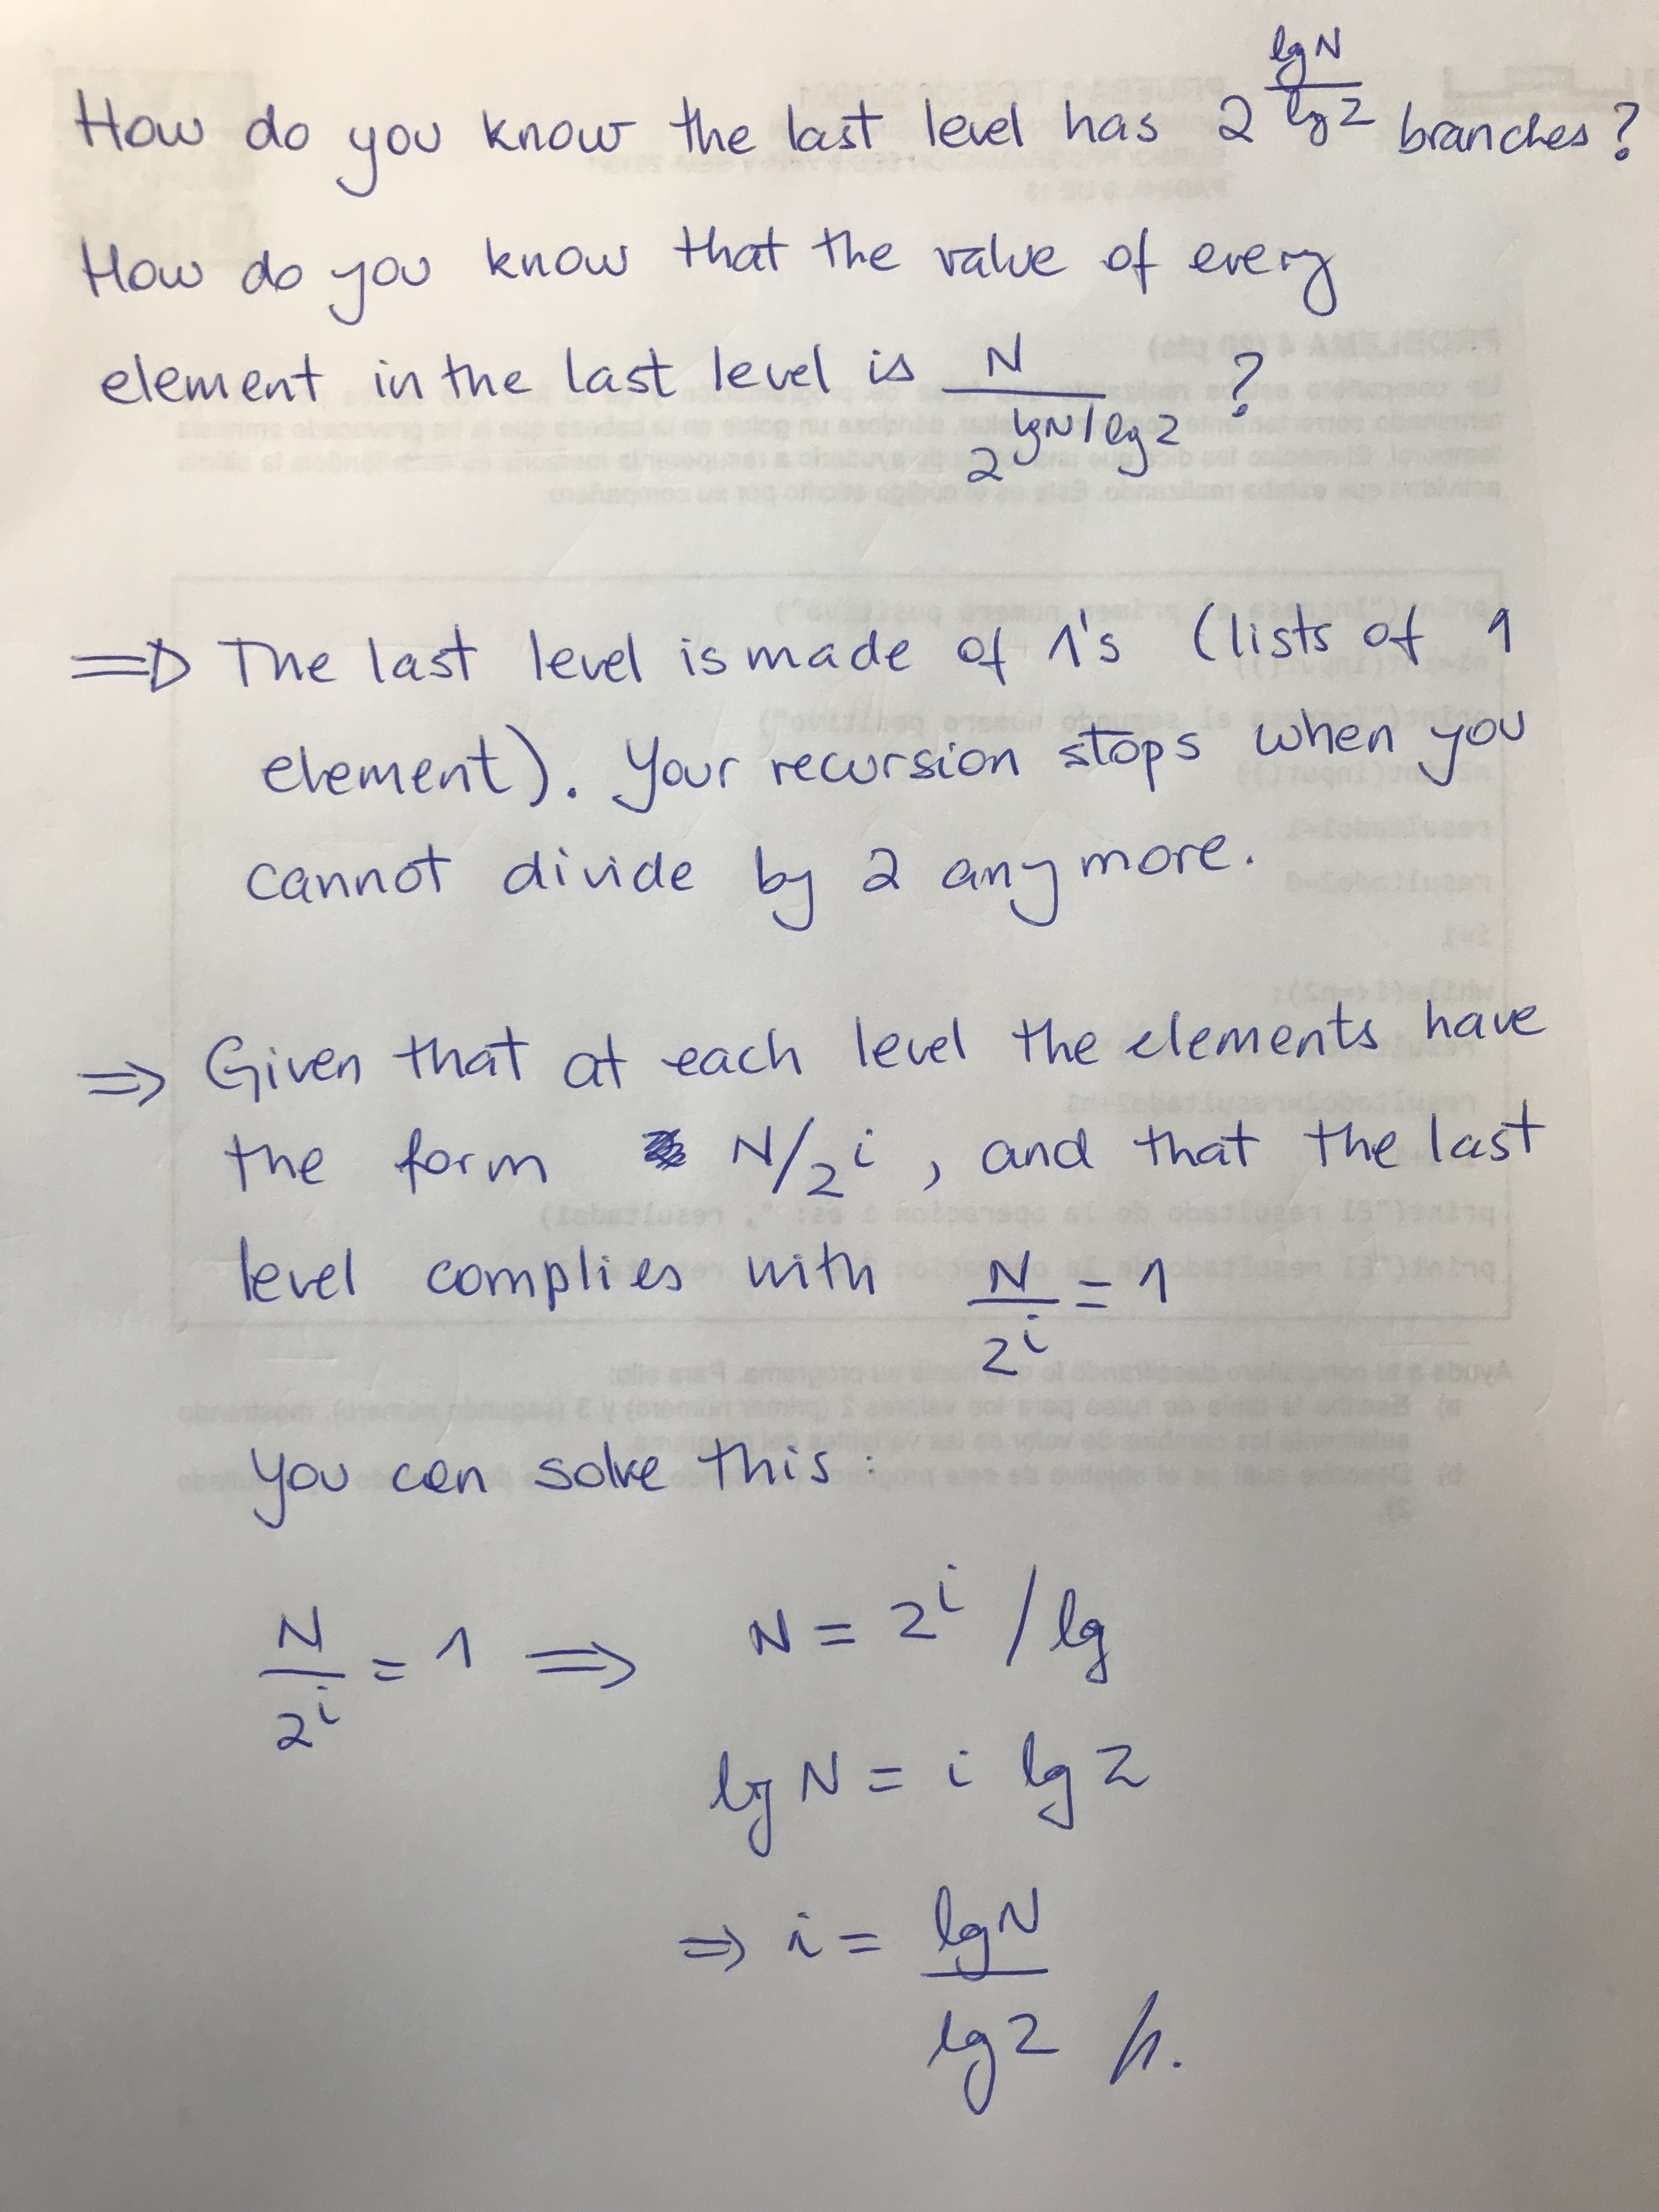 How do you know the last level has 2^(lg N / lg 2) branches?
How do you know that the value of every
element in the last level is N / 2^(lg N / lg 2) ?
=> The last level is made of 1's (lists of 1
element). Your recursion stops when you
cannot divide by 2 any more.
=> Given that at each level the elements have
the form N/2^i, and that the last
level complies with N/2^i = 1
you can solve this:
N/2^i = 1 => N = 2^i / lg
lg N = i lg 2
=> i = lg N / lg 2